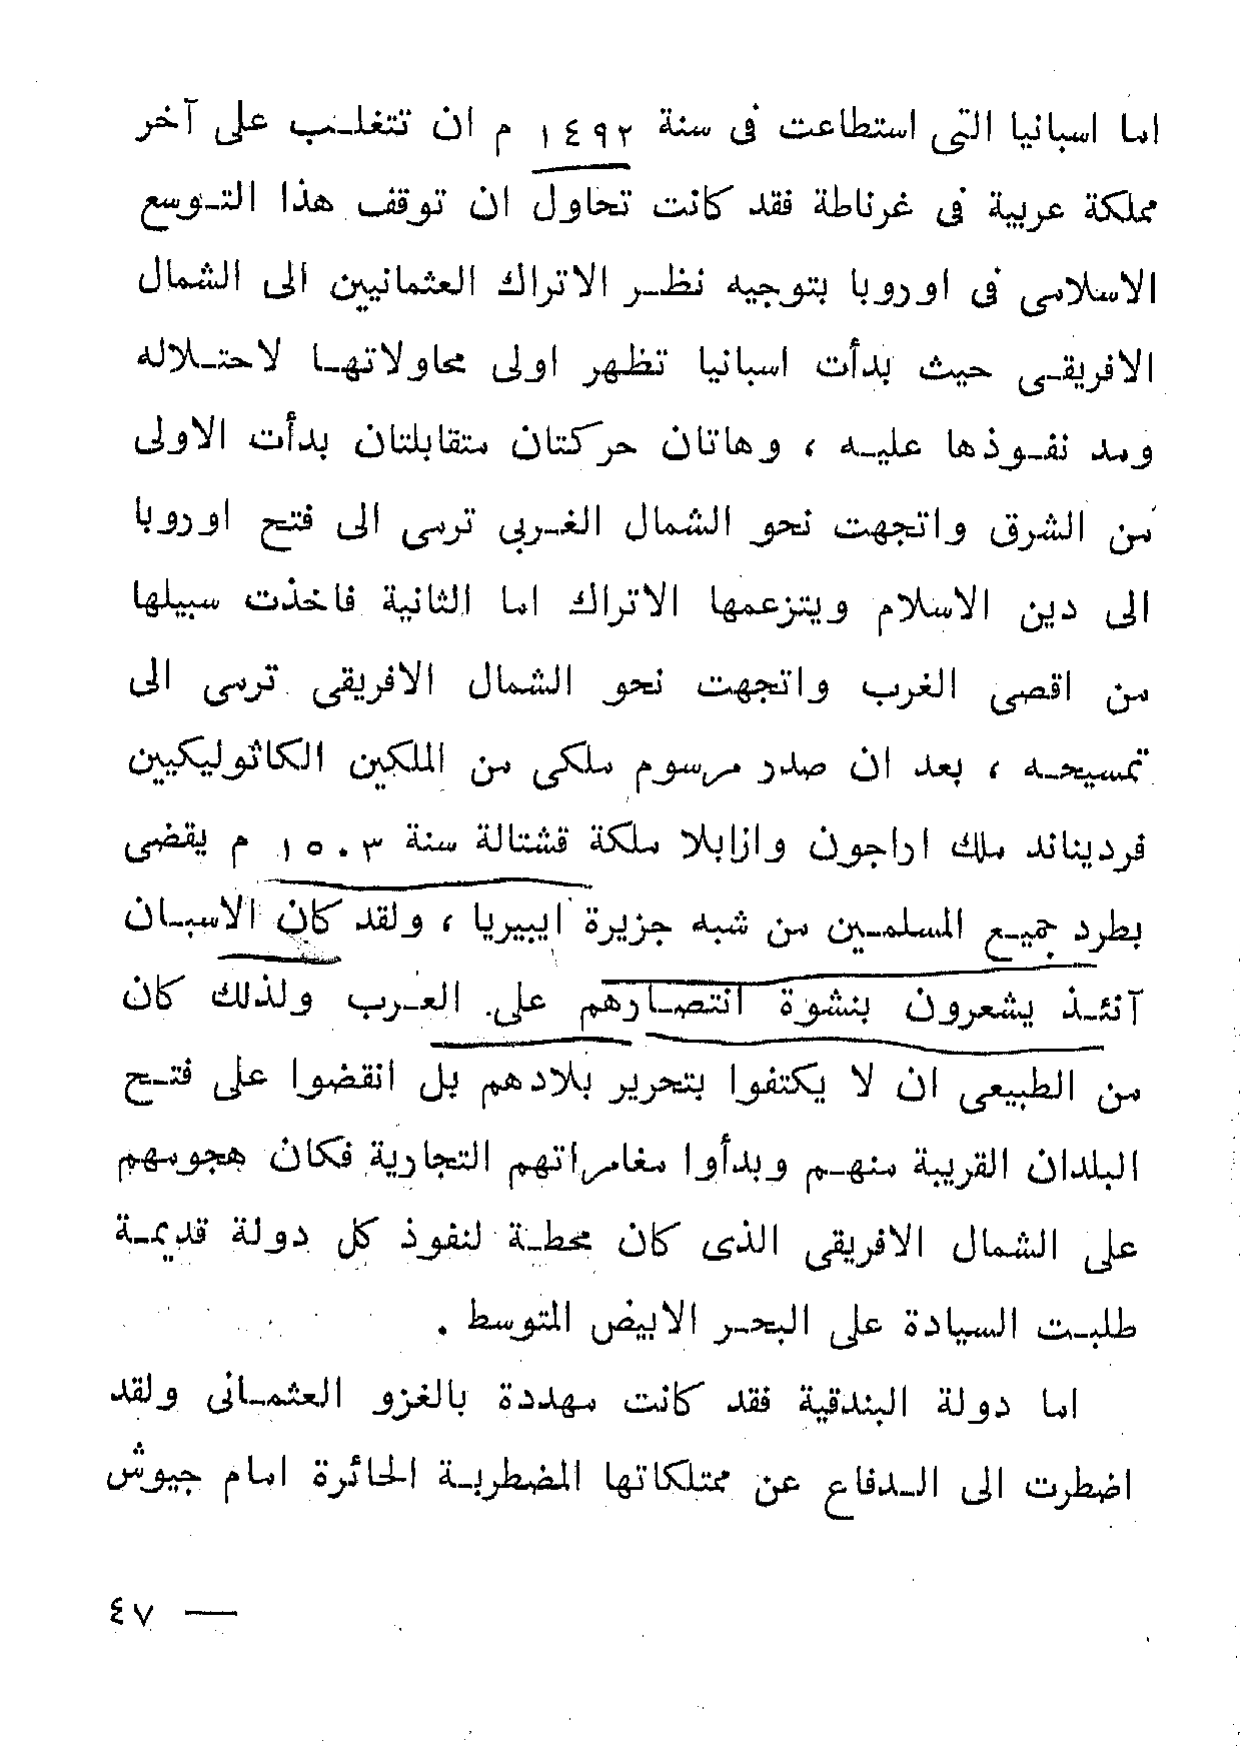 اما اسبانيا التى استطاعت فى سنة ١٤٩٢ م ان تتغلب على آخر
مملكة عربية فى غرناطة فقد كانت تحاول ان توقف هذا التوسع
الاسلامى فى اوروبا بتوجيه نظر الاتراك العثمانيين الى الشمال
الافريقى حيث بدأت اسبانيا تظهر اولى محاولاتها لاحتلاله
ومد نفوذها عليه ، وهاتان حركتان متقابلتان بدأت الاولى
من الشرق واتجهت نحو الشمال الغربى ترمى الى فتح اوروبا
الى دين الاسلام ويتزعمها الاتراك اما الثانية فاخذت سبيلها
من اقصى الغرب واتجهت نحو الشمال الافريقى ترمى الى
تمسيحه ، بعد ان صدر مرسوم ملكى من الملكين الكاثوليكيين
فرديناند ملك اراجون وازابلا ملكة قشتالة سنة ١٥٠٣ م يقضى
بطرد جميع المسلمين من شبه جزيرة ايبيريا ، ولقد كان الاسبان
آنئذ يشعرون بنشوة انتصارهم على العرب ولذلك كان
من الطبيعى ان لا يكتفوا بتحرير بلادهم بل انقضوا على فتح
البلدان القريبة منهم وبدأوا مغامراتهم التجارية فكان هجومهم
على الشمال الافريقى الذى كان محطة لنفوذ كل دولة قديمة
طلبت السيادة على البحر الابيض المتوسط .
اما دولة البندقية فقد كانت مهددة بالغزو العثمانى ولقد
اضطرت الى الدفاع عن ممتلكاتها المضطربة الحائرة امام جيوش
— ٤٧